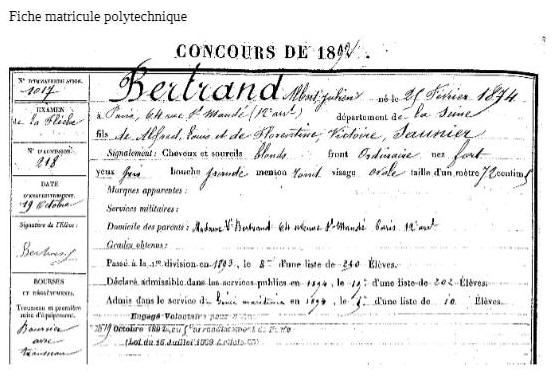 Fiche matricule polytechnique
CONCOURS DE 1892.
N° D'IMMATRICULATION.
1017
EXAMEN
de La Flèche
N° D'ADMISSION.
218
DATE
D'ENREGISTREMENT.
19 Octobre
Signature de l'Élève:
Bertrand
BOURSES
ET DÉGRÈVEMENTS.
Trousseau et première
mise d'équipement.
Boursier
avec
trousseau
Bertrand Albert Julien né le 25 Février 1874
à Paris, 64 rue St Mandé (12e arrt) département de la Seine
fils de Alfred, Louis et de Florentine, Victoire, Saunier
Signalement: Cheveux et sourcils blonds front Ordinaire nez fort
yeux gris bouche grande menton rond visage ovale taille d'un mètre 72 centim
Marques apparentes:
Services militaires:
Domicile des parents: Madame Ve Bertrand 64 avenue St Mandé Paris 12e arrt
Grades obtenus:
Passé à la 1re division en 1893, le 8e d'une liste de 240 Élèves.
Déclaré admissible dans les services publics en 1894, le 19e d'une liste de 202 Élèves.
Admis dans le service du Génie maritime en 1894, le d'une liste de 10 Élèves.
Engagé Volontaire pour
19 Octobre 1892 arrondissement de Paris
(Loi du 15 Juillet 1889